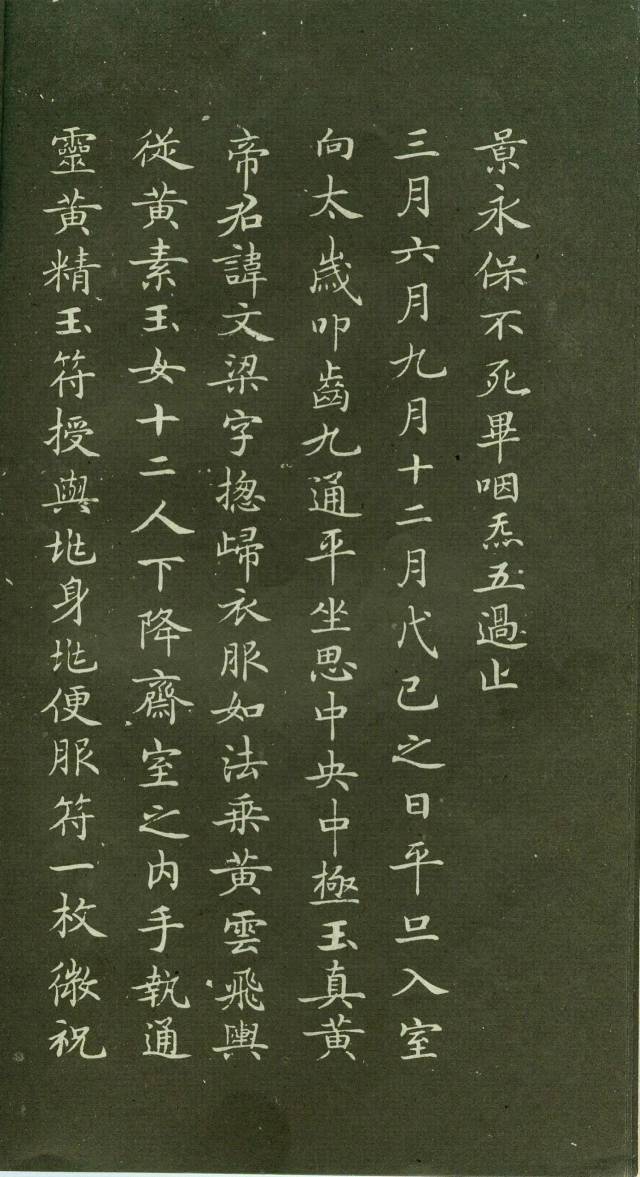 景永保不死畢咽炁五過止
三月六月九月十二月戊己之日平旦入室
向太歲叩齒九通平坐思中央中極玉真黃
帝君諱文梁字揔歸衣服如法乗黃雲飛輿
從黃素玉女十二人下降齋室之内手執通
靈黃精玉符授與兆身兆便服符一枚微祝